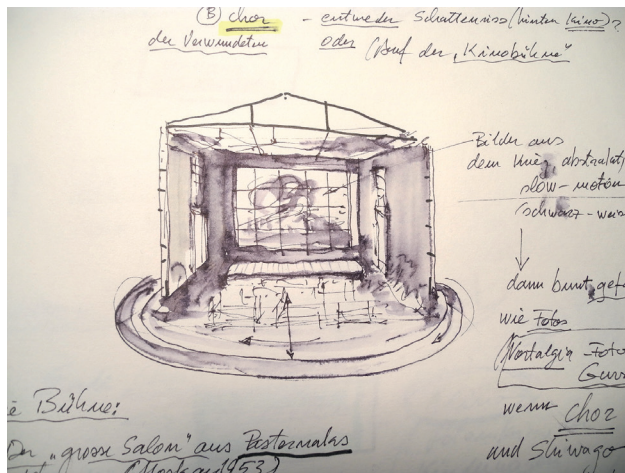 (B) Chor - entweder Schattenriss (hinten Kino)?
der Verwundeten oder (Auf der "Kinobühne"
Bilder aus
dem Krieg, abstrakt
slow-motion
(schwarz-weiss
dann bunt gef
wie Fotos
(Nostalgia-Foto
wenn Chor
und Shiwago
e Bühne:
Der "grosse Salon" aus Pasternaks
1953)